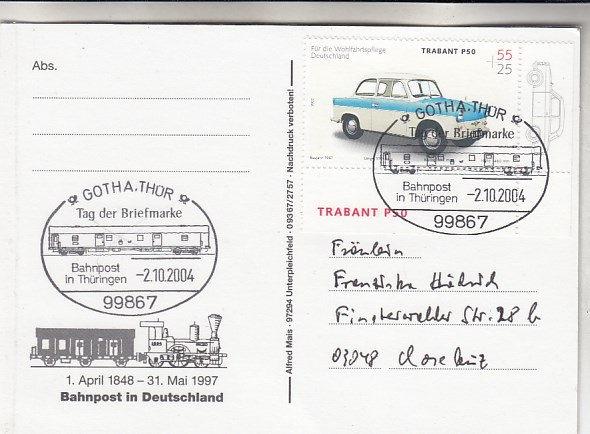 Abs.
GOTHA, THÜR
Tag der Briefmarke
Bahnpost
in Thüringen
-2.10.2004
99867
1. April 1848 – 31. Mai 1997
Bahnpost in Deutschland
Alfred Mais · 97294 Unterpleichfeld · 09367/2757 · Nachdruck verboten!
Für die Wohlfahrtspflege
Deutschland
TRABANT P50
55
+25
GOTHA, THÜR
Tag der Briefmarke
Bahnpost
in Thüringen
-2.10.2004
99867
TRABANT P50
Fräulein
Franziska
Finsterwalder Str. 28 b
03048